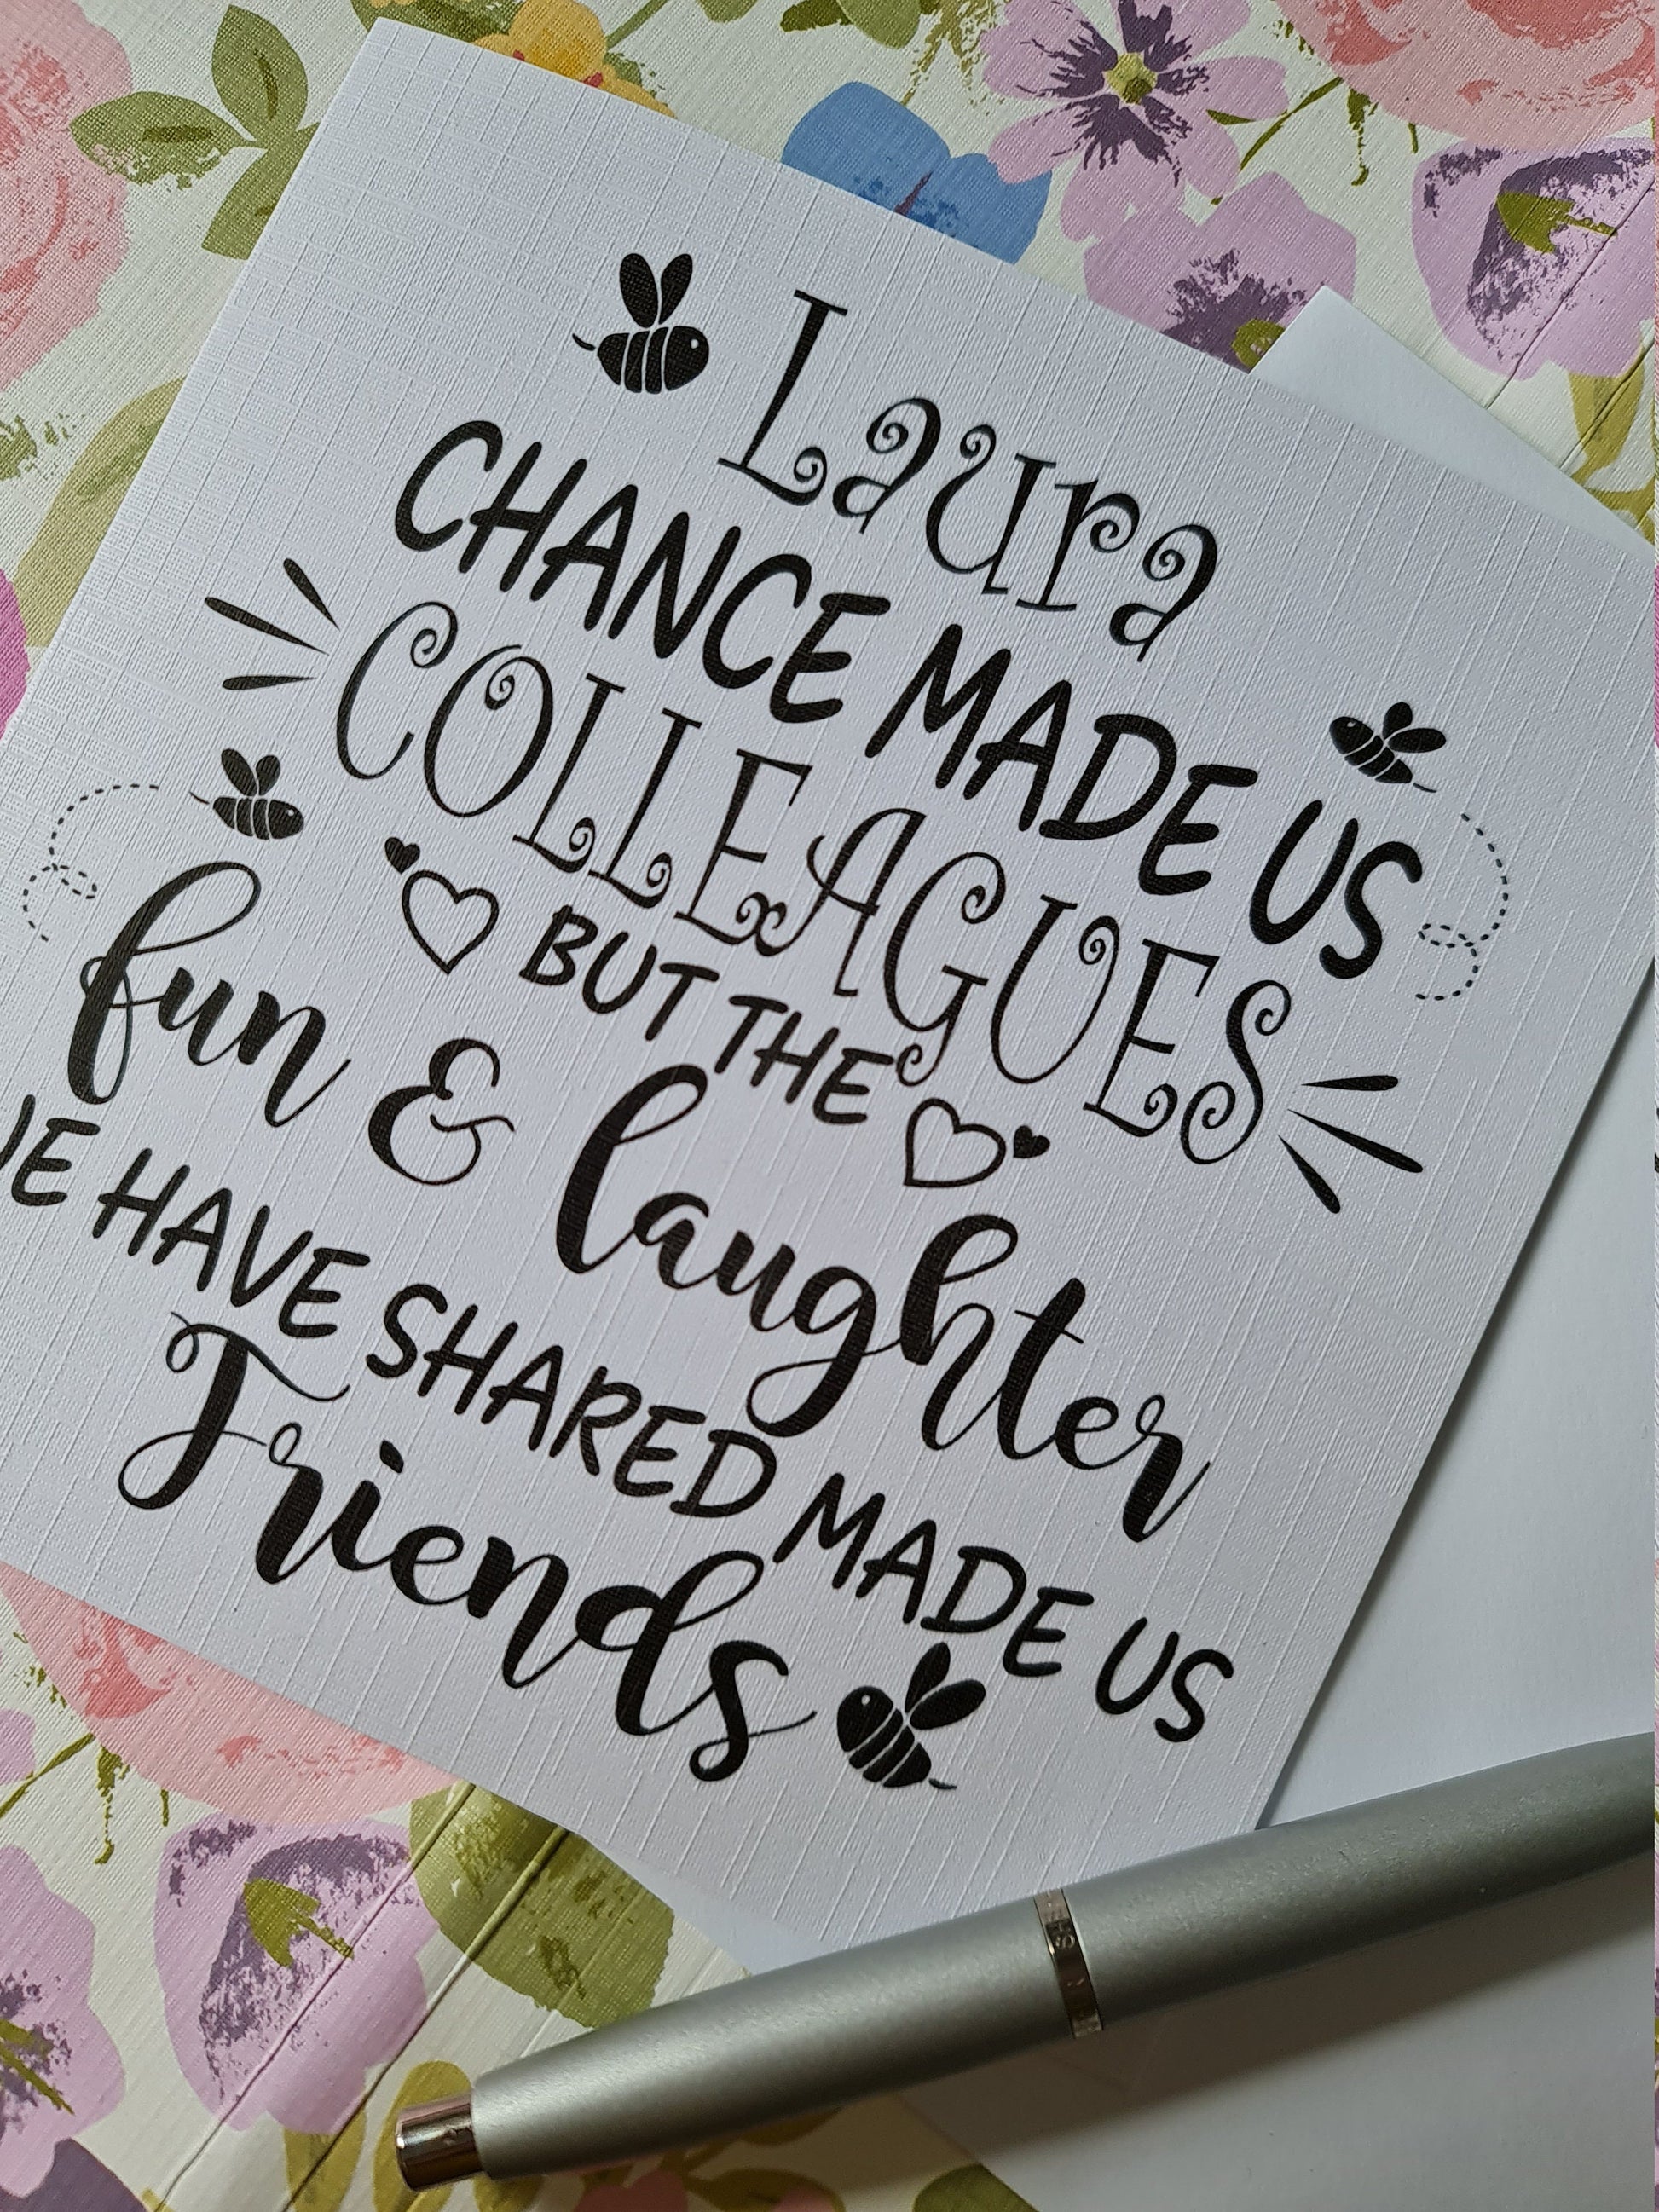 Laura
CHANCE MADE US
COLLEAGUES
BUT THE
fun & laughter
HAVE SHARED MADE US
Friends